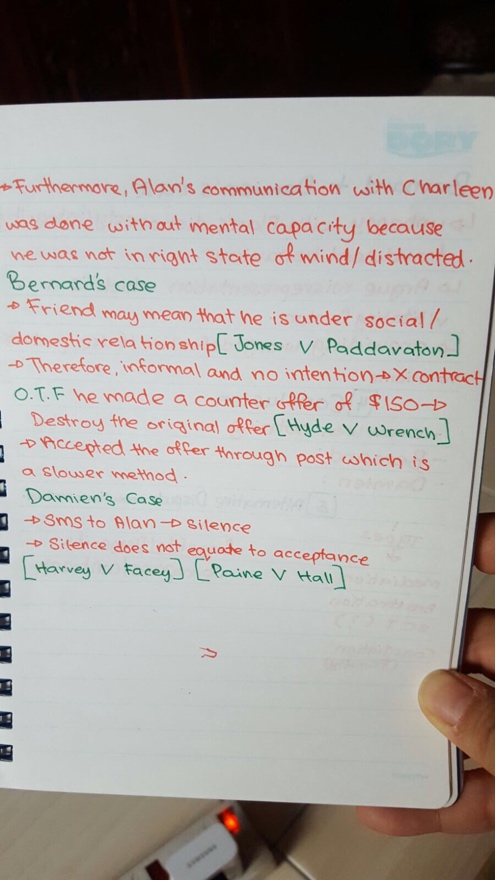 → Furthermore, Alan's communication with Charleen
was done without mental capacity because
he was not in right state of mind/distracted.
Bernard's case
→ Friend may mean that he is under social/
domestic relationship [Jones V Paddavaton]
→ Therefore, informal and no intention → X contract
O.T.F he made a counter offer of $150 →
Destroy the original offer [Hyde V Wrench]
→ Accepted the offer through post which is
a slower method.
Damien's Case
→ Sms to Alan → Silence
→ Silence does not equate to acceptance
[Harvey V Facey] [Paine V Hall]